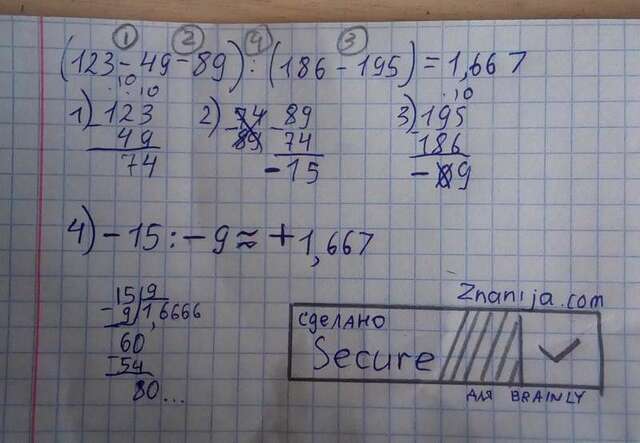 1 2 4 3
(123-49-89):(186-195)=1,667
1) 123 2) 74 - 89 3) 195
49 89 74 186
74 -15 -9
4) -15:-9≈+1,667
15 9
9 1,6666
60
54
80...
Znanija.com
СДЕЛАНО
Secure
ДЛЯ BRAINLY